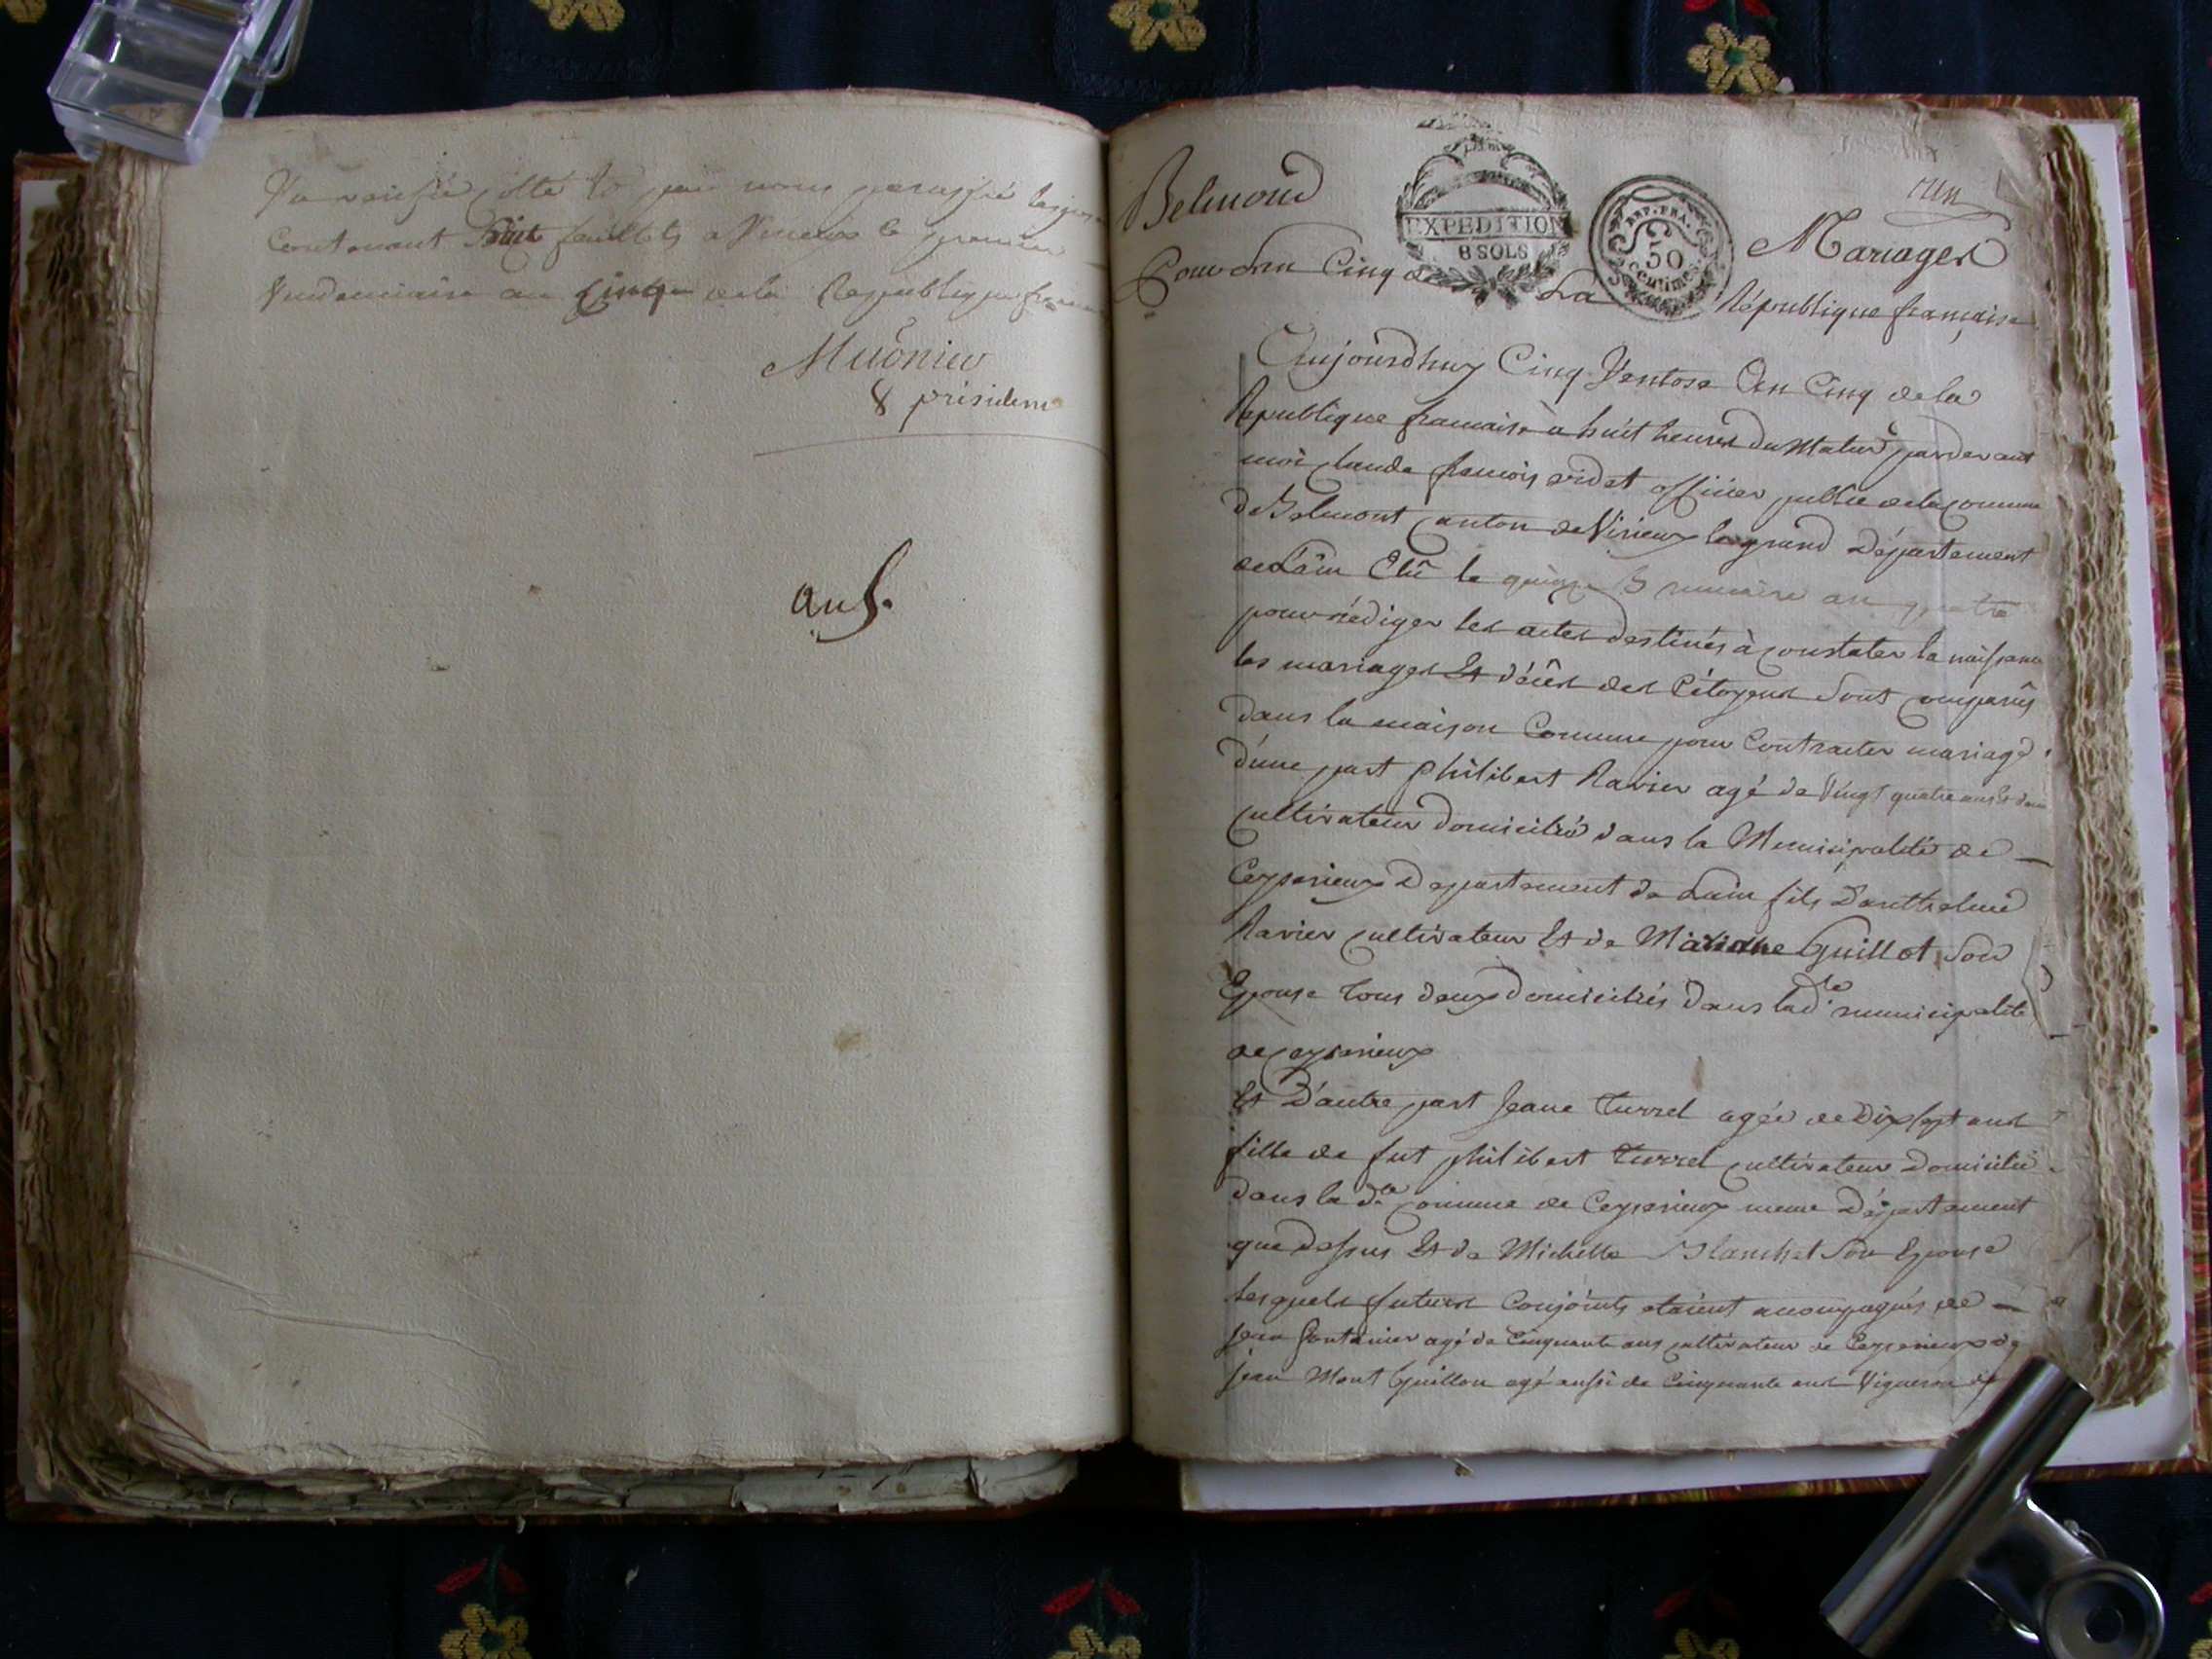 contenant huit feuillets a Virieux le premier
Vendemiaire an cinq de la Republique
Mugnier
président
an 5.
un
Belmond
EXPEDITION
8 SOLS
REP. FRA.
50
centimes
Mariages
Pour L'an Cinq de La République française
Aujourdhuy Cinq Ventose An Cinq de la
Republique francaise a huit heures du Matin pardevant
moi Claude francois ordet officier public de la Commune
de Belmont Canton de Virieux le grand Département
de L'ain Elû le quinze Brumaire an quatre
pour rédiger les actes destinés à constater la naissance
les mariages Et décês des Citoyens Sont comparûs
dans la maison Commune pour Contracter mariage
d'une part Philibert Ravier agé de Vingt quatre ans Et demi
Cultivateur domicilié dans la Municipalité de
Ceyzerieux Departement de Lain fils D'anthelme
Ravier cultivateur Et de Marianne Guillot Son
Epouse tous deux domiciliés dans lad.te municipalité
de Ceyzerieux
Et D'autre part Jeane Turrel agée de Dix sept ans
fille de fut philibert Turrel cultivateur domicilié
dans la d.e Commune de Ceyzerieux meme Département
que dessus Et de Michelle Blanchet Son Epouse
Lesquels futurs Conjoints etaient acompagnés de
Jean fontanier agé de Cinquante ans cultivateur de Ceyzerieux de
jean Mont Guillon agé aussi de Cinquante ans Vigneron de